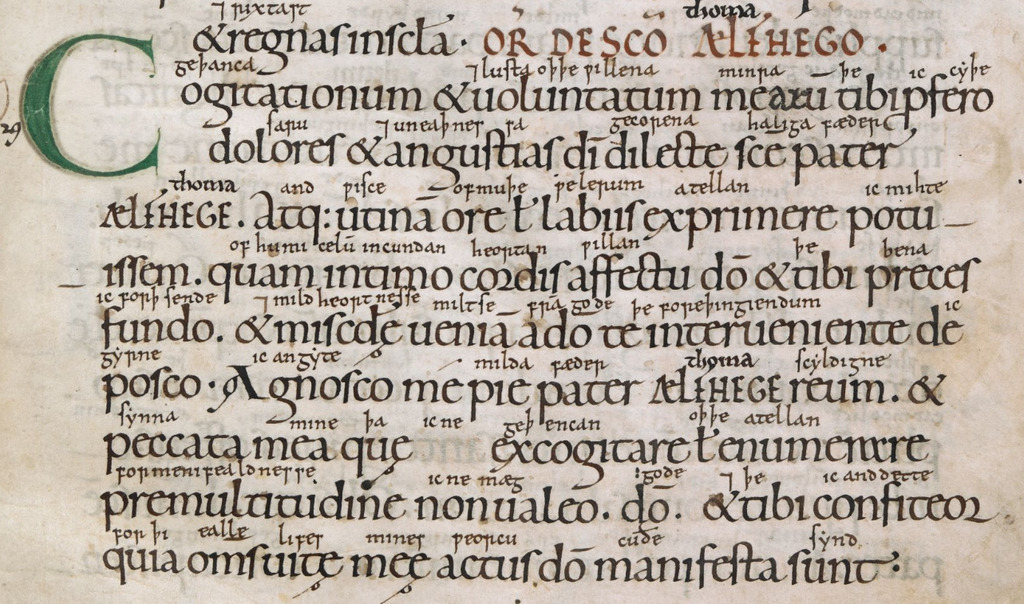 ⁊ ꞃixtaꞅt thoma
&regnas in scła· OR̄ DE S͞CO ÆLFHEGO·
geþanca ⁊ lusta oþþe ƿillena minra þe ic cyþe
Cogitationum & uoluntatum mearū tibi ꝓfero
29 saru ⁊ uneaþnes ra gecorena haliga fæder
dolores & angustias dī dilecte s͞ce pater
thoma and ƿisce of muþe ƿelerum atellan ic mihte
ÆLFHEGE. Atq: utinā ore ł labiis exprimere potu
of humi celū incundan heortan ƿillan þe bena
issem. quam intimo cordis affectu dō & tibi preces
ic forþ sende ⁊ mildheortnesse miltse frā gode þe foreþingiendum ic
fundo. & miscđę ueniā a dō te interueniente de
gyrne ic angyte milda fæder thoma scyldigne
posco· Agnosco me pie pater ÆLFHEGE reum. &
synna mine þa ic ne geþencan oþþe atellan
peccata mea quę excogitare ł enumerare
for menifealdnesse ic ne mæg gode ⁊ þe ic anddette
pre multitudine non ualeo. dō. & tibi confiteor
for þi ealle lifes mines ƿeorcu cuðe synd
quia om̄s uitę meę actus dō manifesta sunt·